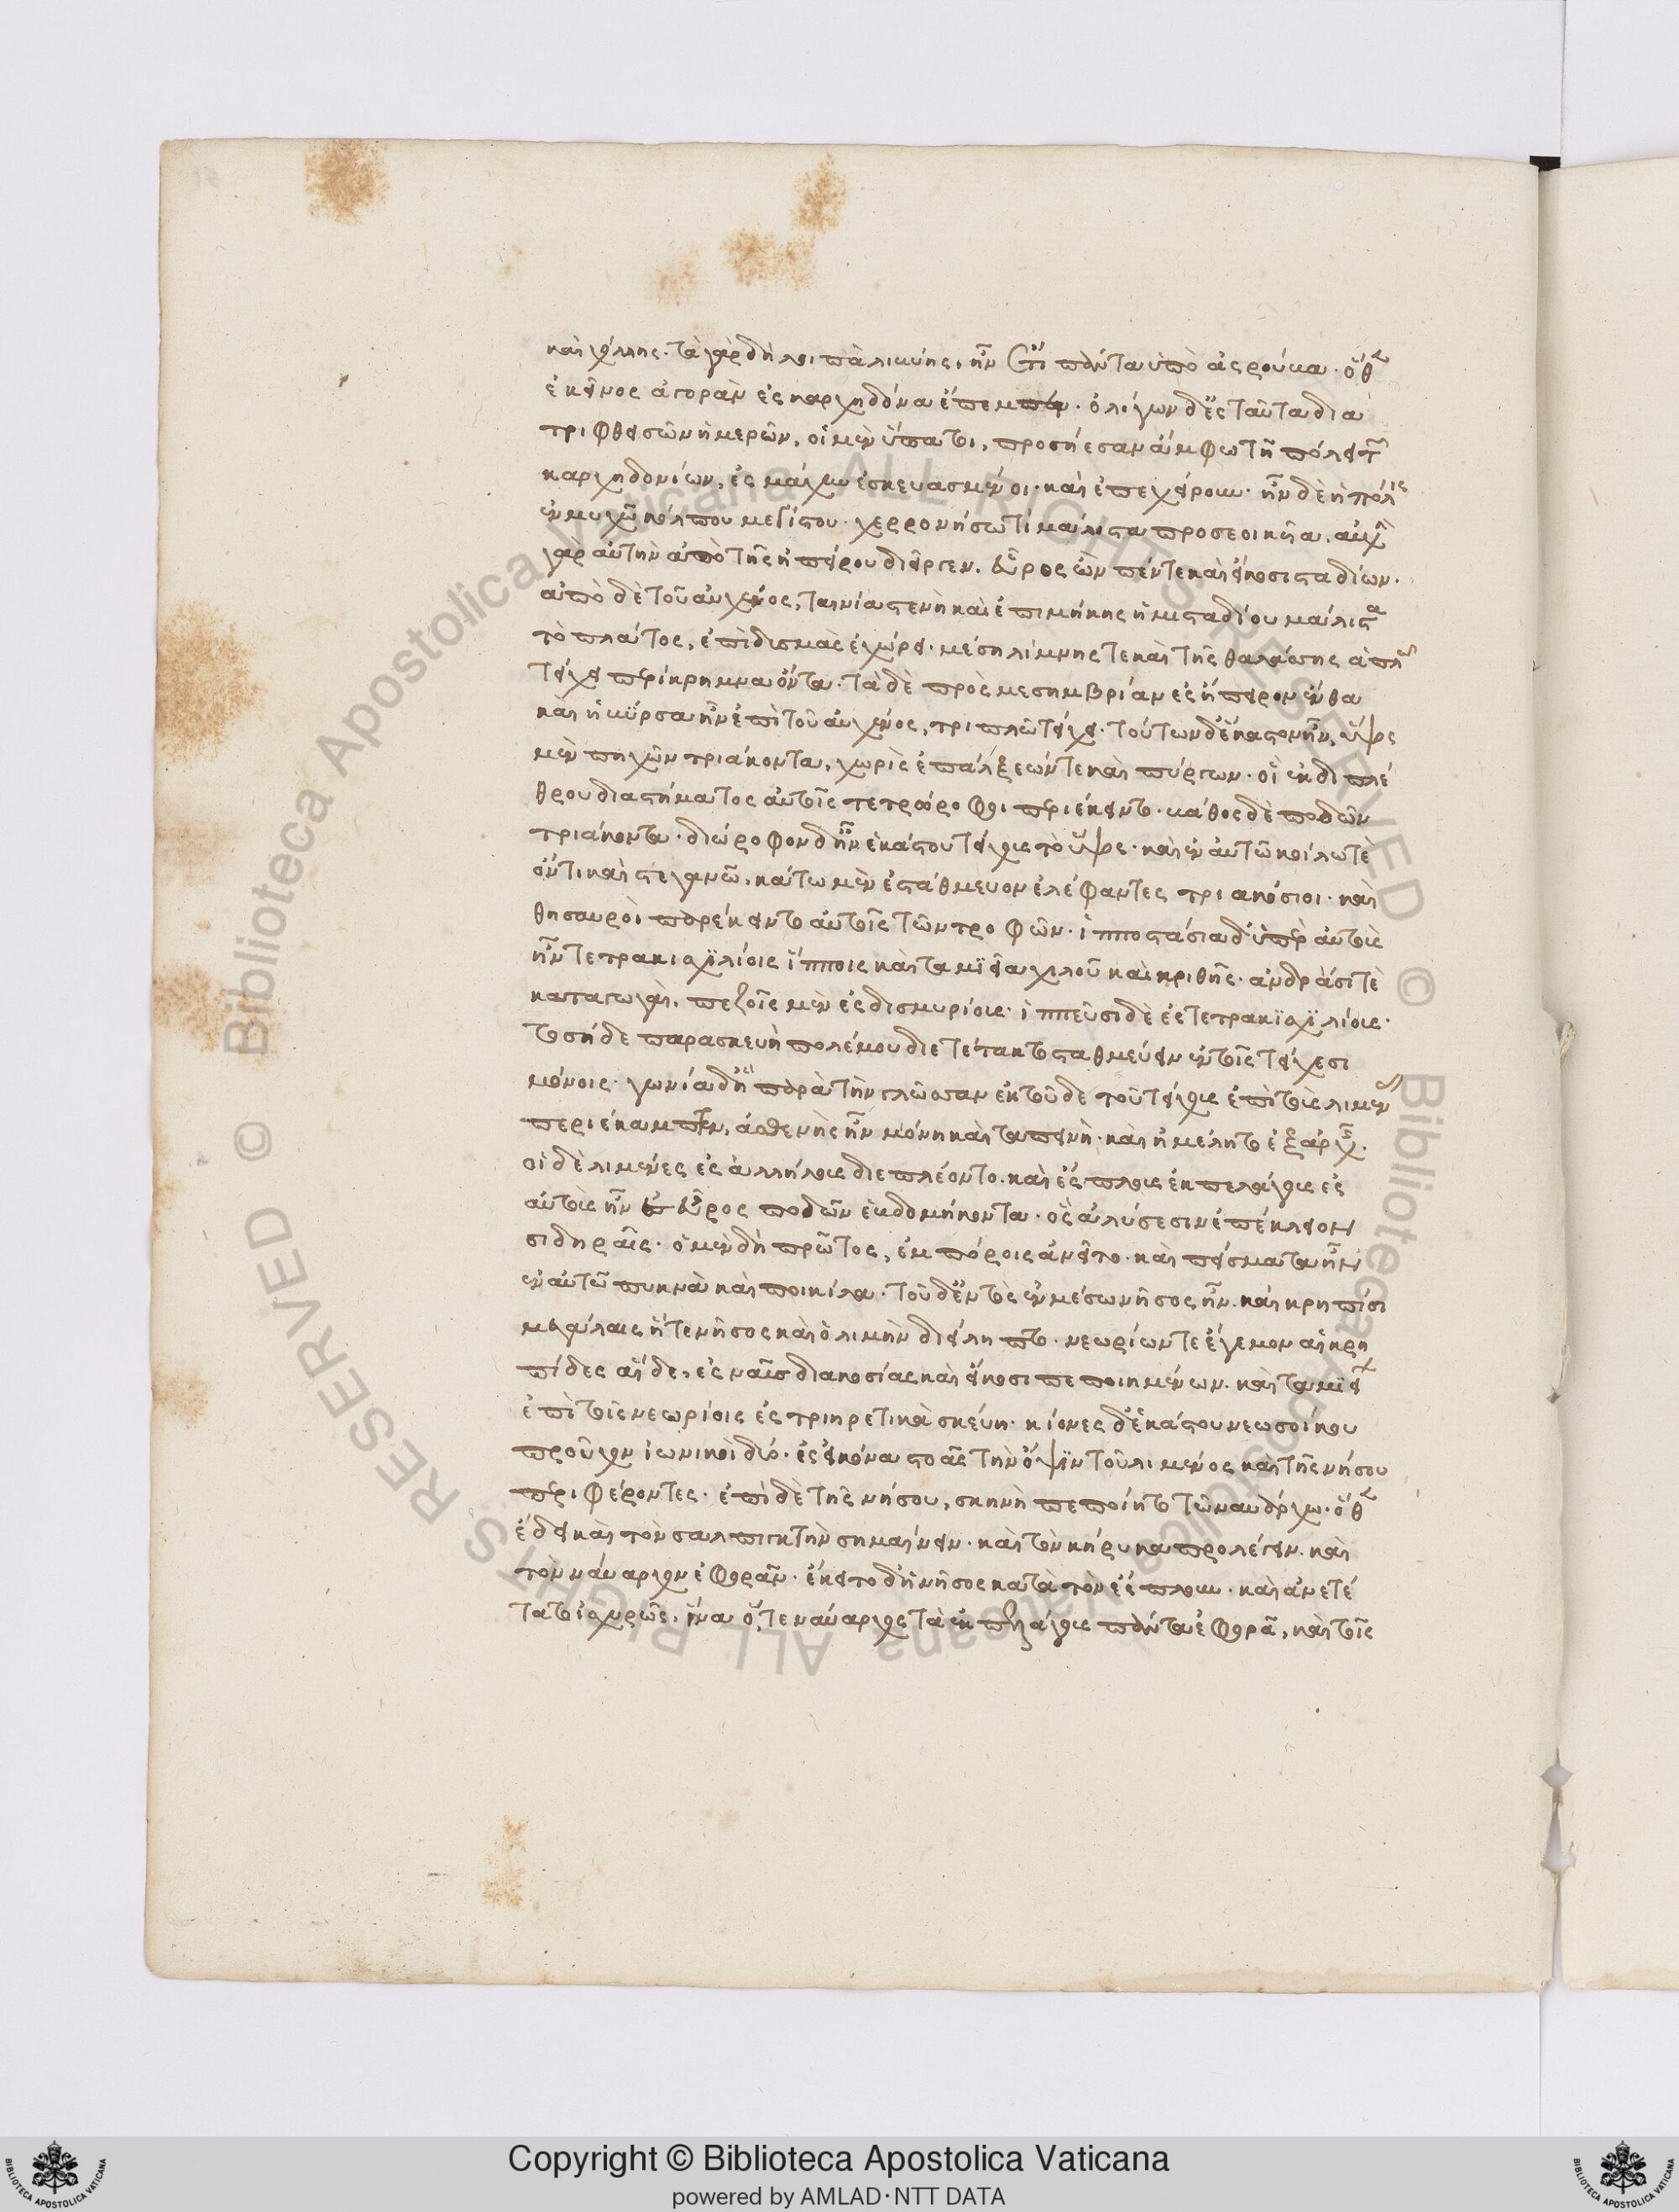 καὶ γύλλης. τὰ γὰρ δὴ λοιπὰ λιβύης, ἦν ἔτι πάντα ὑπὸ ἀσρούβα. ὅθεν
ἐκεῖνος ἀγορὰν ἐς καρχηδόνα ἔπεμπεν. ὀλίγων δ' ἐς ταῦτα δια
τριφθεισῶν ἡμερῶν, οἱ μὲν ὕπατοι, προσήεσαν ἄμφω τῆ πόλει τῶν
καρχηδονίων, ἐς μάχην ἐσκευασμένοι. καὶ ἐπεχείρουν. ἦν δὲ ἡ πόλις
ἐν μυχῶ κόλπου μεγίστου. χερρονήσω τί μάλιστα προσεοικυῖα. αὐχὴν
γὰρ αὐτὴν ἀπὸ τῆς ἠπείρου διεῖργεν. εὖρος ὢν πέντε καὶ εἴκοσι σταδίων.
ἀπὸ δὲ τοῦ αὐχένος, ταινία στενὴ καὶ ἐπιμήκης ἡμισταδίου μάλιστα
τὸ πλάτος, ἐπὶ δισμὰς ἐχώρει. μέση λίμνης τε καὶ τῆς θαλάσσης ἁπλῶ
τείχει περίκρημνα ὄντα. τὰ δὲ πρὸς μεσημβρίαν ἐς ἤπειρον ἔνθα
καὶ ἡ βύρσα ἦν ἐπὶ τοῦ αὐχένος, τριπλῶ τείχει. τούτων δ' ἕκαστον ἦν, ὕψος
μὲν πηχῶν τριάκοντα, χωρὶς ἐπάλξεών τε καὶ πύργων. οἳ ἐκ διπλέ
θρου διαστήματος αὐτοῖς τετρώροφοι περιέκειντο. βάθος δὲ ποδῶν
τριάκοντα. διώροφον δ' ἦν ἑκάστου τείχους τὸ ὕψος. καὶ ἐν αὐτῶ κοίλω τὲ
ὄντι καὶ στεγανῶ, κάτω μὲν ἐστάθμευον ἐλέφαντες τριακόσιοι. καὶ
θησαυροὶ παρέκειντο αὐτοῖς τῶν τροφῶν. ἱπποστάσια δ' ὑπὲρ αὐτοὺς
ἦν τετρακισχιλίοις ἵπποις καὶ ταμιεῖα χιλοῦ καὶ κριθῆς. ἀνδράσί τὲ
καταγωγαὶ, πεζοῖς μὲν ἐς δισμυρίους. ἱππεῦσι δὲ ἐς τετρακισχιλίους.
τοσήδε παρασκευὴ πολέμου διετέτακτο σταθμεύειν ἐν τοῖς τείχεσι
μόνοις. γωνία δ' ἣ παρὰ τὴν γλῶσσαν ἐκ τοῦδε τοῦ τείχους ἐπὶ τοὺς λιμένας
περιέκαμπτεν, ἀσθενὴς ἦν μόνη καὶ ταπεινὴ. καὶ ἠμέλητο ἐξ ἀρχῆς.
οἱ δὲ λιμένες ἐς ἀλλήλους διεπλέοντο. καὶ ἔσπλους ἐκ πελάγους ἐς
αὐτοὺς ἦν ἐς εὖρος ποδῶν ἑβδομήκοντα. ὃς ἁλύσεσιν ἐπέκλειον
σιδηραῖς. ὁ μὲν δὴ πρῶτος, ἐμπόροις ἀνεῖτο. καὶ πείσματα ἦν
ἐν αὐτῶ πυκνὰ καὶ ποικίλα. τοῦ δ' ἐντὸς ἐν μέσω νῆσος ἦν. καὶ κρηπίσι
μεγάλαις ἥ τε νῆσος καὶ ὁ λιμὴν διείληπτο. νεωρίων τε ἔγεμον αἱ κρη
πίδες αἵδε, ἐς ναῦς διακοσίας καὶ εἴκοσι πεποιημένων. καὶ ταμιεῖα
ἐπὶ τοῖς νεωρίοις ἐς τριηρετικὰ σκεύη. κίονες δ' ἑκάστου νεωσοίκου
προῦχον ἰωνικοὶ δύο. ἐς εἰκόνα στοᾶς τὴν ὄψιν τοῦ λιμένος καὶ τῆς νήσου
περιφέροντες. ἐπὶ δὲ τῆς νήσου, σκηνὴ πεποίητο τῶ ναυάρχω. ὅθεν
ἔδει καὶ τὸν σαλπιγκτὴν σημαίνειν. καὶ τὸν κήρυκα προλέγειν. καὶ
τὸν ναύαρχον ἐφορᾶν. ἔκειτο δ' ἡ νῆσος κατὰ τὸν ἔσπλουν. καὶ ἀνετέ
τατο ἰσχυρῶς. ἵνα ὅ, τε ναύαρχος τὰ ἐκ πελάγους πάντα ἐφορᾶ, καὶ τοῖς